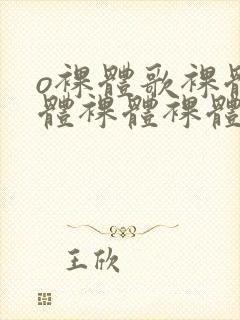 o裸體歌裸體
體裸體裸體
王欣